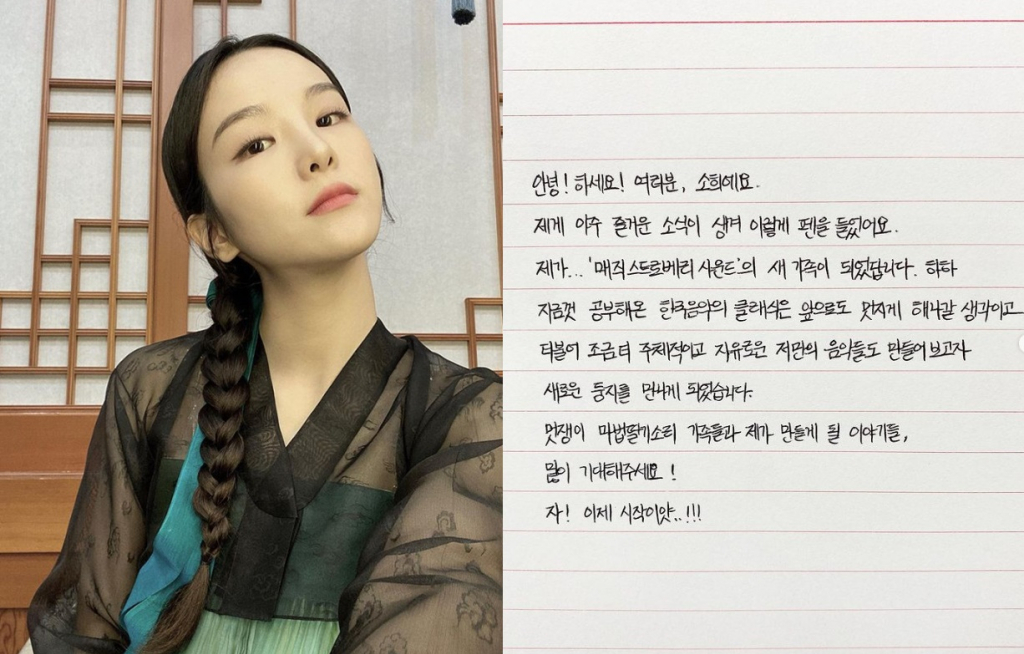 안녕! 하세요! 여러분, 소희예요.
제게 아주 즐거운 소식이 생겨 이렇게 펜을 들었어요.
제가... '매직스트로베리 사운드'의 새 가족이 되었답니다. 하하
지금껏 공부해온 한국음악의 클래식은 앞으로도 멋지게 해나갈 생각이고
더불어 조금 더 주체적이고 자유로운 저만의 음악들도 만들어보고자
새로운 둥지를 만나게 되었습니다.
멋쟁이 마법딸기소리 가족들과 제가 만들게 될 이야기들,
많이 기대해주세요!
자! 이제 시작이얏..!!!